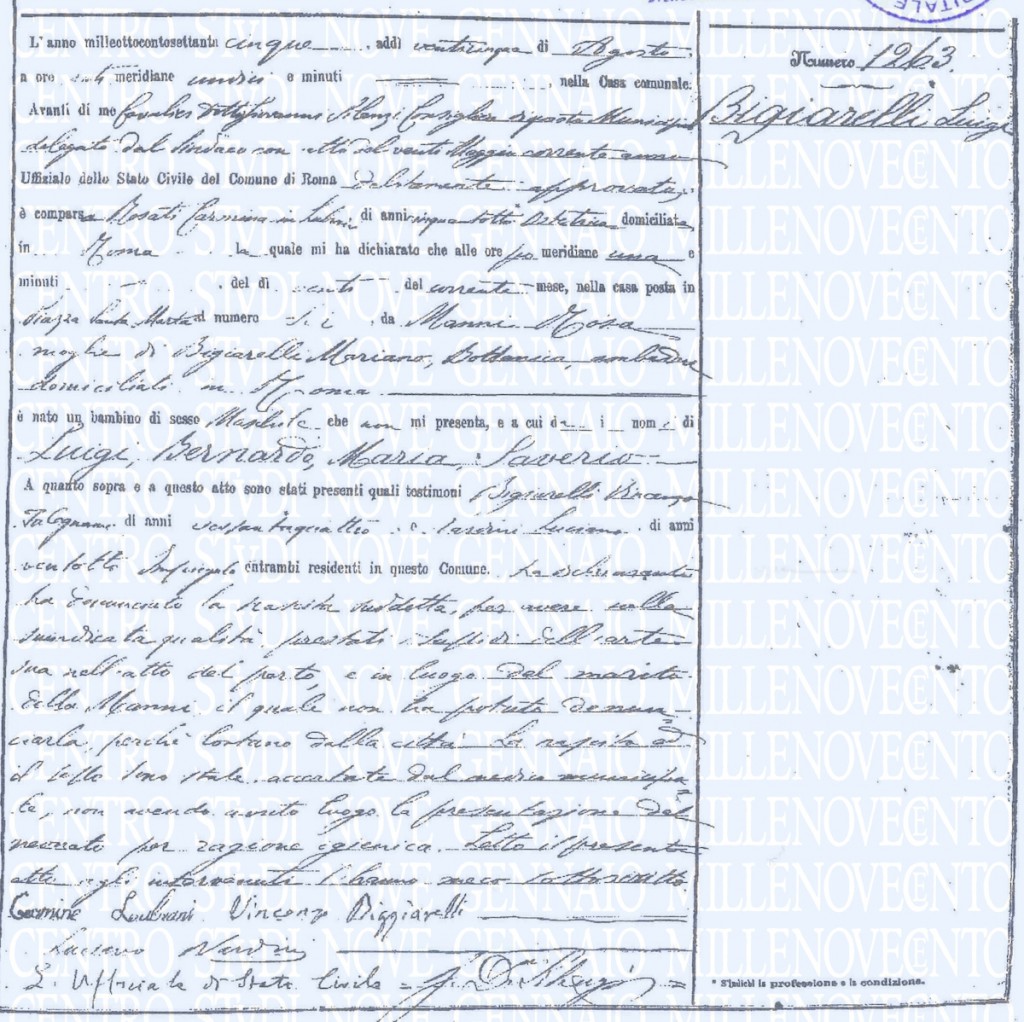 L'anno milleottocentosettanta cinque, addì venticinque di Agosto
a ore anti meridiane undici e minuti , nella Casa comunale.
Avanti di me Cavalier Dotts Giovanni Silenzi Consigliere Municipale
delegato dal Sindaco con atto del venti Maggio corrente anno
Uffiziale dello Stato Civile del Comune di Roma debitamente approvato,
è comparsa Rosati Carmina in Lubrani di anni cinquantotto Ostetrica domiciliata
in Roma la quale mi ha dichiarato che alle ore po meridiane una e
minuti , del dì venti del corrente mese, nella casa posta in
Piazza Santa Marta al numero sei da Manni Rosa
moglie di Bigiarelli Mariano, ambedue
domiciliati in Roma
è nato un bambino di sesso Maschile che non mi presenta, e a cui dà i nomi di
Luigi, Bernardo, Maria, Saverio
A quanto sopra e a questo atto sono stati presenti quali testimoni Bigiarelli Vincenzo
Falegname di anni sessantaquattro e Luciano di anni
ventotto Impiegato entrambi residenti in questo Comune. La dichiarante
ha denunciato la nascita suddetta, per avere nella
suindicata qualità prestati i sussidi dell'arte
sua nell'atto del parto, e in luogo del marito
della Manni il quale non ha potuto denun-
ciarla perchè lontano dalla città La nascita ed
il sesso sono state accertate dal medico municipa
le, non avendo avuto luogo la presentazione del
neonato per ragione igienica. Letto il presente
atto agli intervenuti l'hanno meco sottoscritto
Carmine Lubrani Vincenzo Biggiarelli
Luciano
L'Ufficiale di Stato Civile = G. D. Silenzi
Numero 1263.
Bigiarelli Luigi
* S'indichi la professione o la condizione.
CENTRO STUDI NOVE GENNAIO MILLENOVECENTO